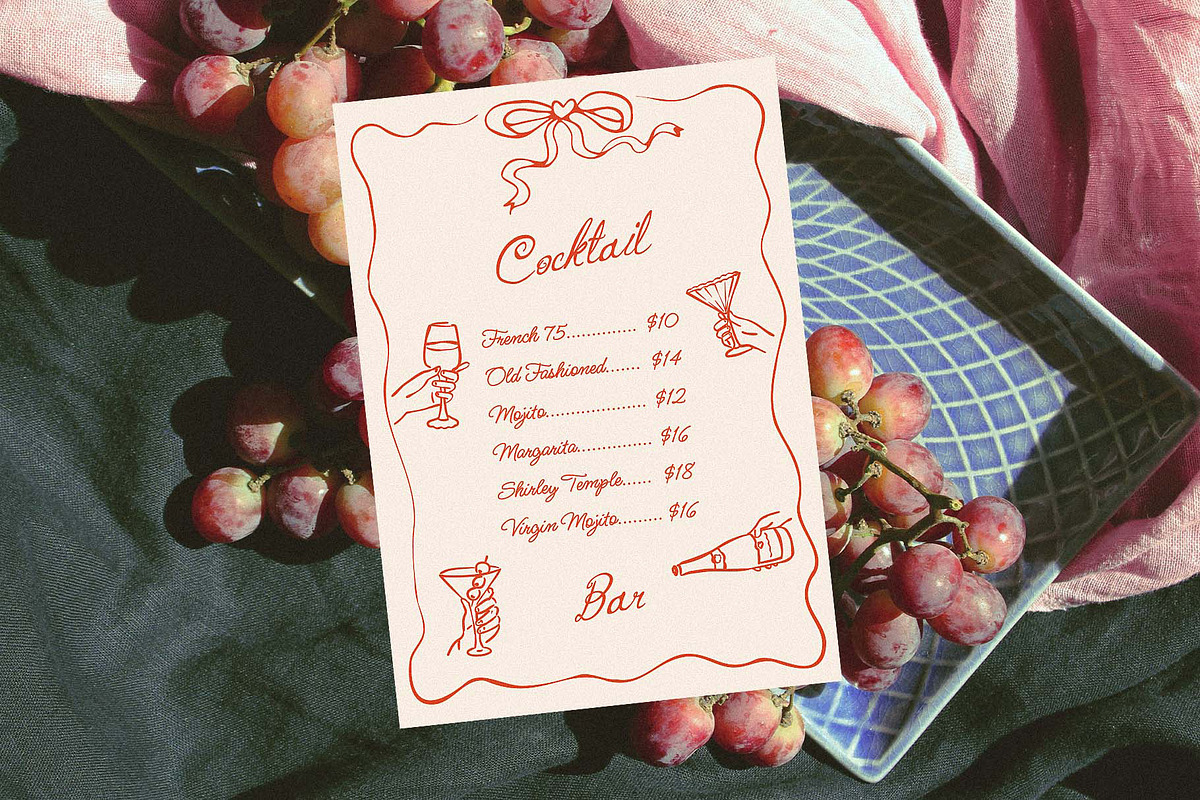 Cocktail
French 75............. $10
Old Fashioned....... $14
Mojito.................... $12
Margarita............... $16
Shirley Temple...... $18
Virgin Mojito......... $16
Bar